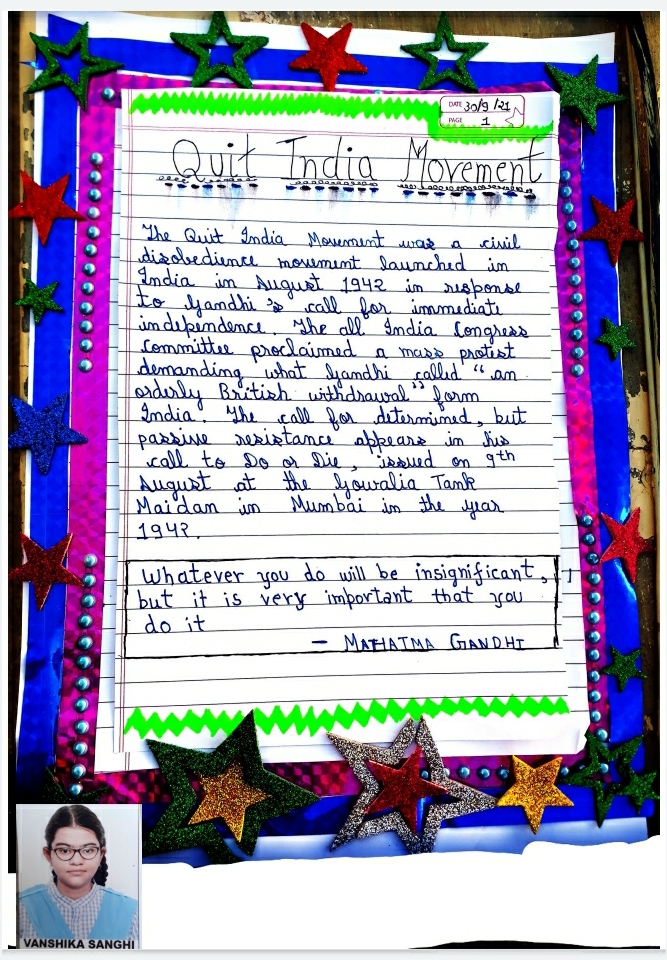 DATE 30/9/21
PAGE 1
Quit India Movement
The Quit India Movement was a civil
disobedience movement launched in
India in August 1942 in response
to Gandhi's call for immediate
independence. The all India Congress
committee proclaimed a mass protest
demanding what Gandhi called "an
orderly British withdrawal" form
India. The call for determined, but
passive resistance appears in his
call to Do or Die, issued on 9th
August at the Gowalia Tank
Maidan in Mumbai in the year
1942.
Whatever you do will be insignificant,
but it is very important that you
do it
- MAHATMA GANDHI
VANSHIKA SANGHI